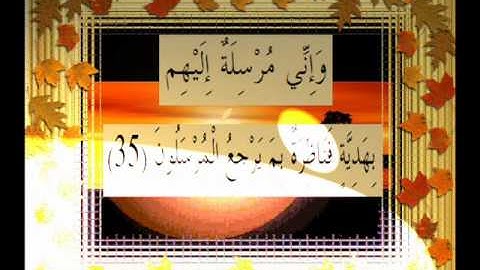 وَإِنِّي مُرْسِلَةٌ إِلَيْهِم
بِهَدِيَّةٍ فَنَاظِرَةٌ بِمَ يَرْجِعُ الْمُرْسَلُونَ (35)